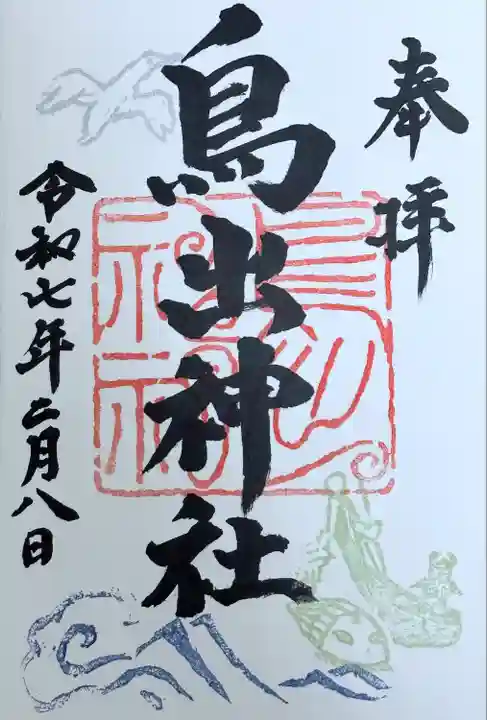 奉拝
鳥出神社
令和七年二月八日